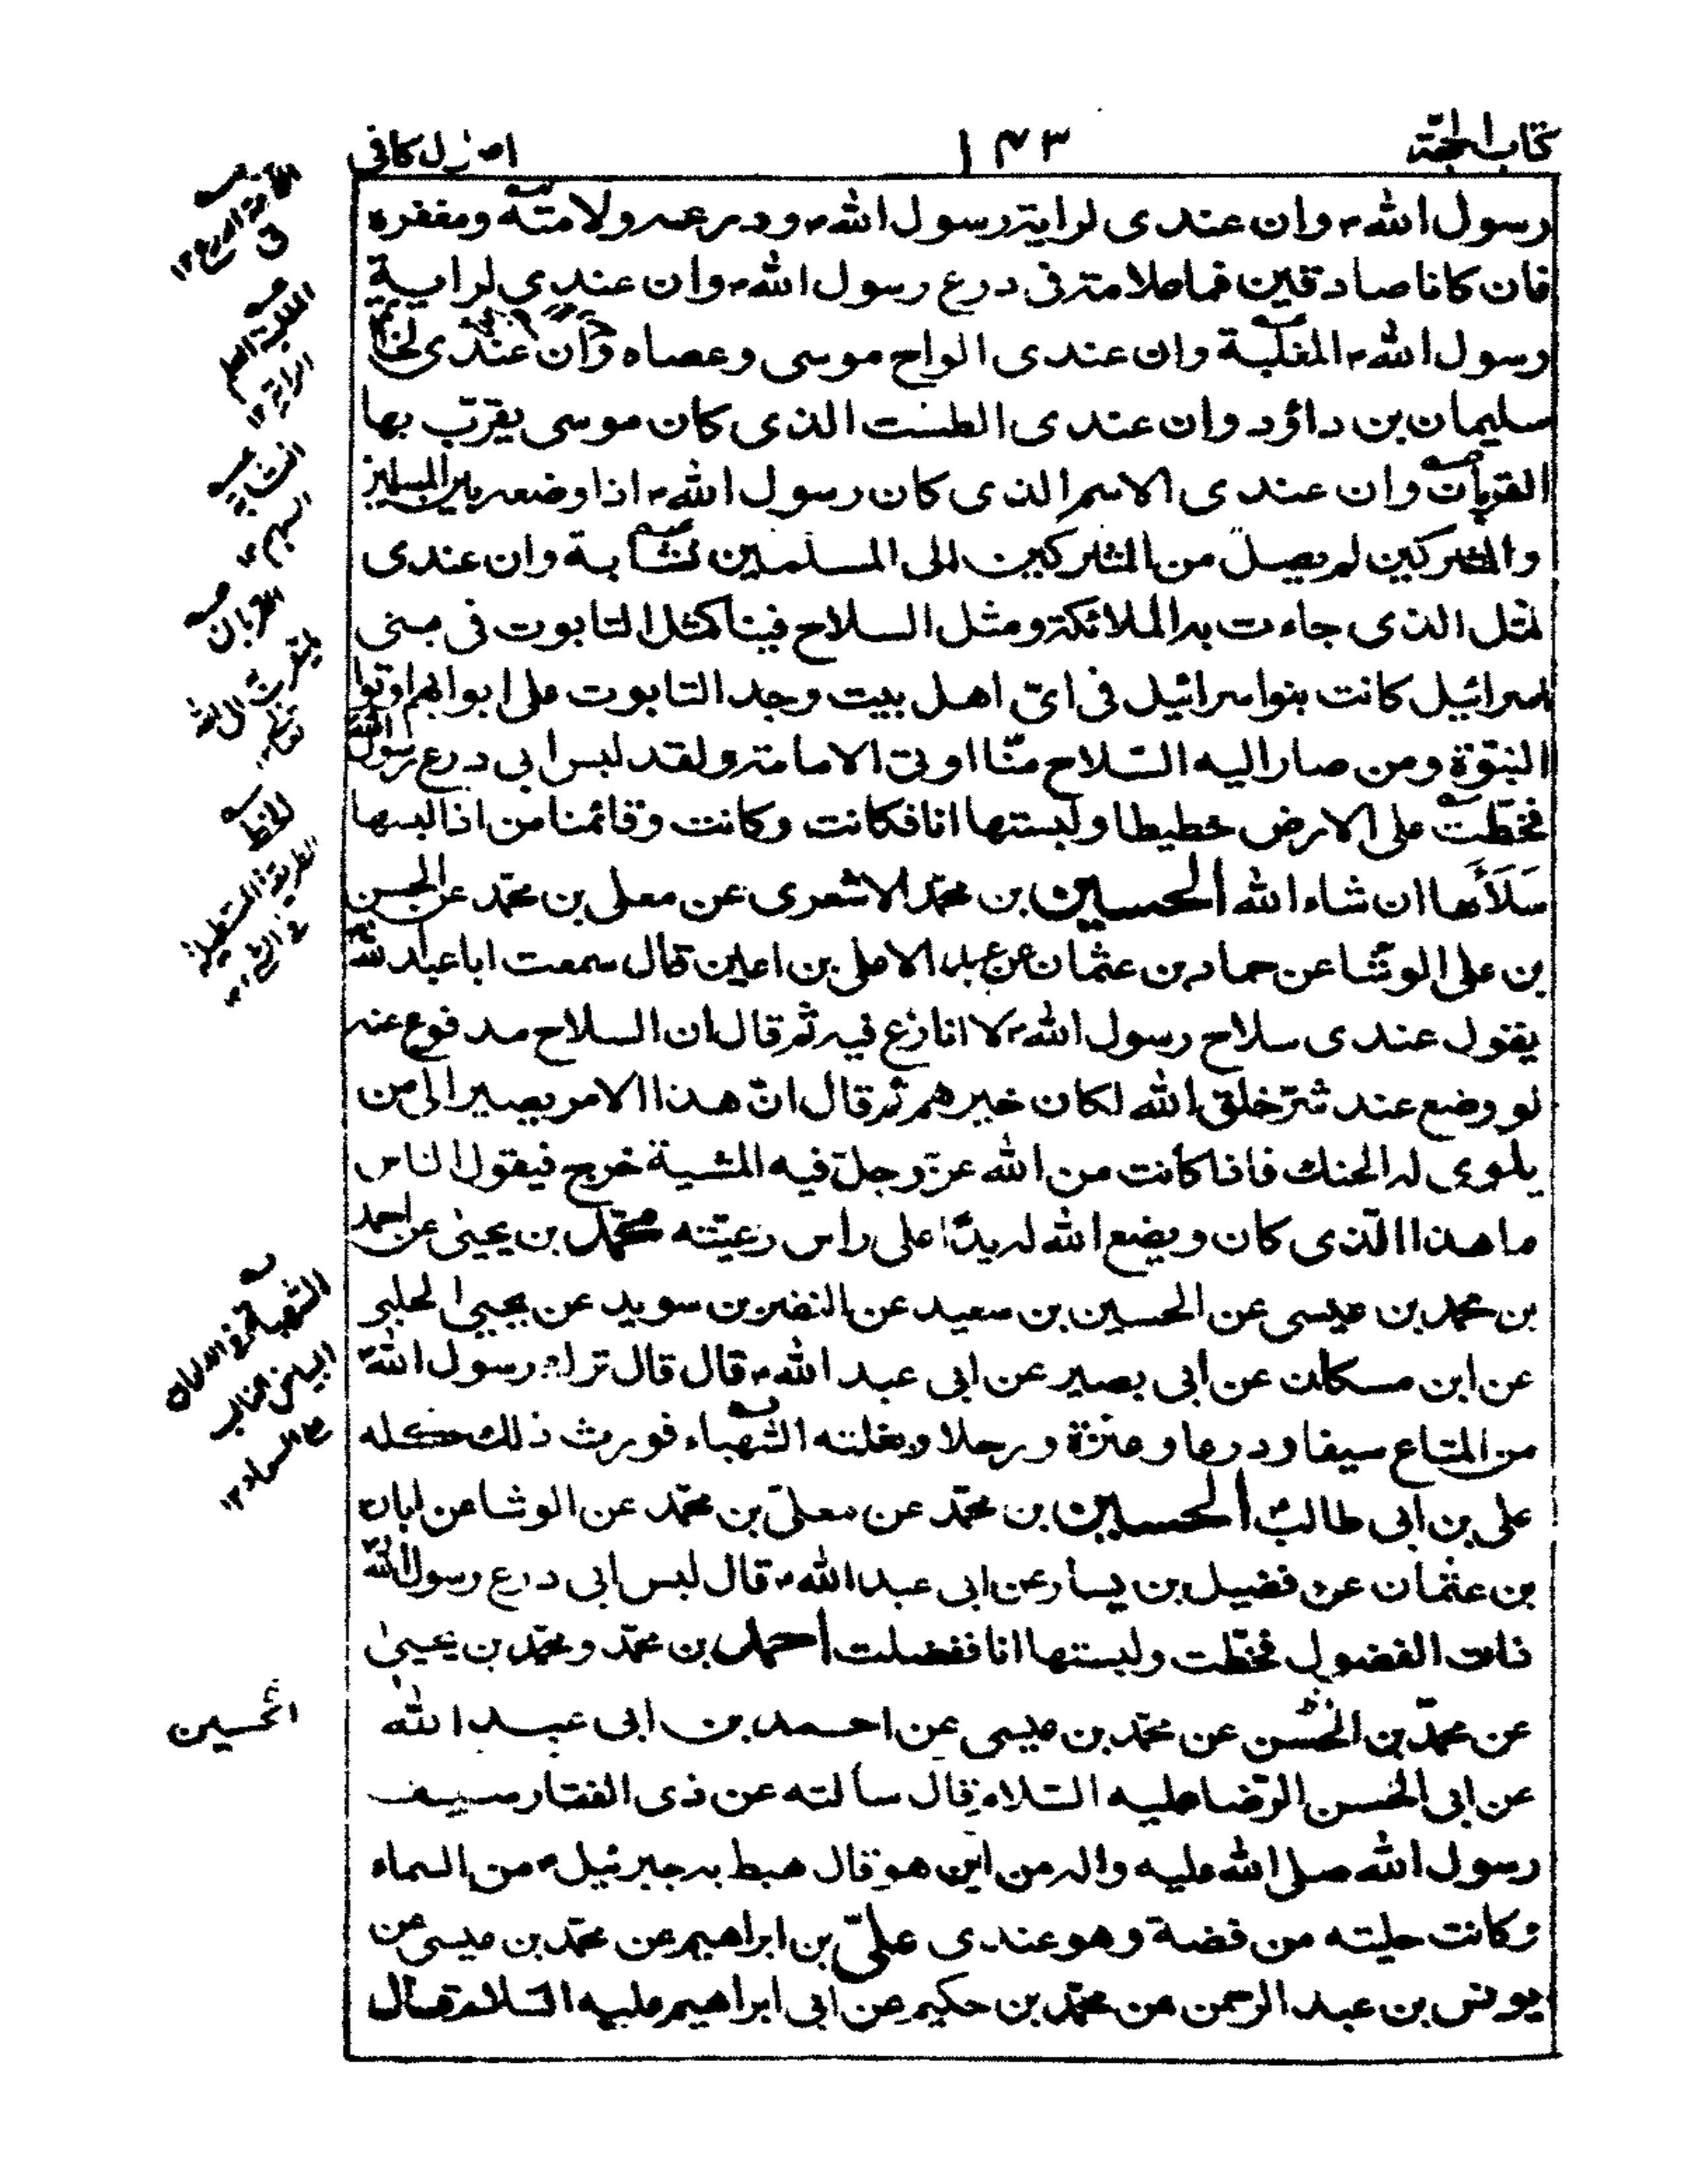 كتاب الحجّة ١٤٣ اصول كافى
رسول الله ص وان عندى لراية رسول الله ص ودرعه ولامته ومغفره
فان كانا صادقين فما علامة فى درع رسول الله ص وان عندي لراية
رسول الله ص المغلبة وان عندى الواح موسى وعصاه وان عندى لخاتم
سليمان بن داؤد وان عندى الطست الذى كان موسى يقرّب بها
القربان وان عندى الاسم الذى كان رسول الله ص اذا وضعه بين المسلمين
والمشركين لم يصل من المشركين الى المسلمين نشّابة وان عندى
لمثل الذى جاءت به الملائكة ومثل السلاح فينا كمثل التابوت فى بنى
اسرائيل كانت بنو اسرائيل فى اىّ اهل بيت وجد التابوت على ابوابهم اوتوا
النبوّة ومن صار اليه السّلاح منّا اوتى الامامة ولقد لبس ابى درع رسول الله
فخطّت على الارض خطيطا ولبستها انا فكانت وكانت وقائمنا من اذا لبسها
سَلَأَها ان شاء الله الحسين بن محمّد الاشعرى عن معلى بن محمّد عن الحسن
بن على الوشّا عن حماد بن عثمان عن عبد الاعلى بن اعين قال سمعت ابا عبد الله
يقول عندى سلاح رسول الله ص لا انازع فيه ثم قال ان السلاح مدفوع عنه
لو وضع عند شرّ خلق الله لكان خيرهم ثم قال انّ هذا الامر يصير الى من
يلوى له الحنك فاذا كانت من الله عزّ وجلّ فيه المشية خرج فيقول الناس
ما هذا الّذى كان ويضع الله له يدًا على راس رعيّته محمّد بن يحيىٰ عن احمد
بن محمد بن عيسى عن الحسين بن سعيد عن النضر بن سويد عن يحيى الحلبى
عن ابن مسكان عن ابى بصير عن ابى عبد الله ع قال قال ترك رسول الله ص
من المتاع سيفا ودرعا وعنزة ورحلا وبغلته الشهباء فورث ذلك كله
على بن ابى طالب ع الحسين بن محمّد عن معلّى بن محمّد عن الوشا عن ابان
بن عثمان عن فضيل بن يسار عن ابى عبد الله ع قال لبس ابى درع رسول الله
ذات الفضول فخطّت ولبستها انا ففضلت احمد بن محمّد ومحمّد بن يحيىٰ
عن محمّد بن الحسن عن محمّد بن عيسى عن احمد بن ابى عبد الله
الحسين
عن ابى الحسن الرّضا عليه السّلام قال سالته عن ذى الفقار سيف
رسول الله صلى الله عليه واله من اين هو قال هبط به جبرئيل ع من السماء
وكانت حليته من فضة وهو عندى علىّ بن ابراهيم عن محمّد بن عيسى عن
يونس بن عبد الرحمن عن محمّد بن حكيم عن ابى ابراهيم عليه السّلام قال